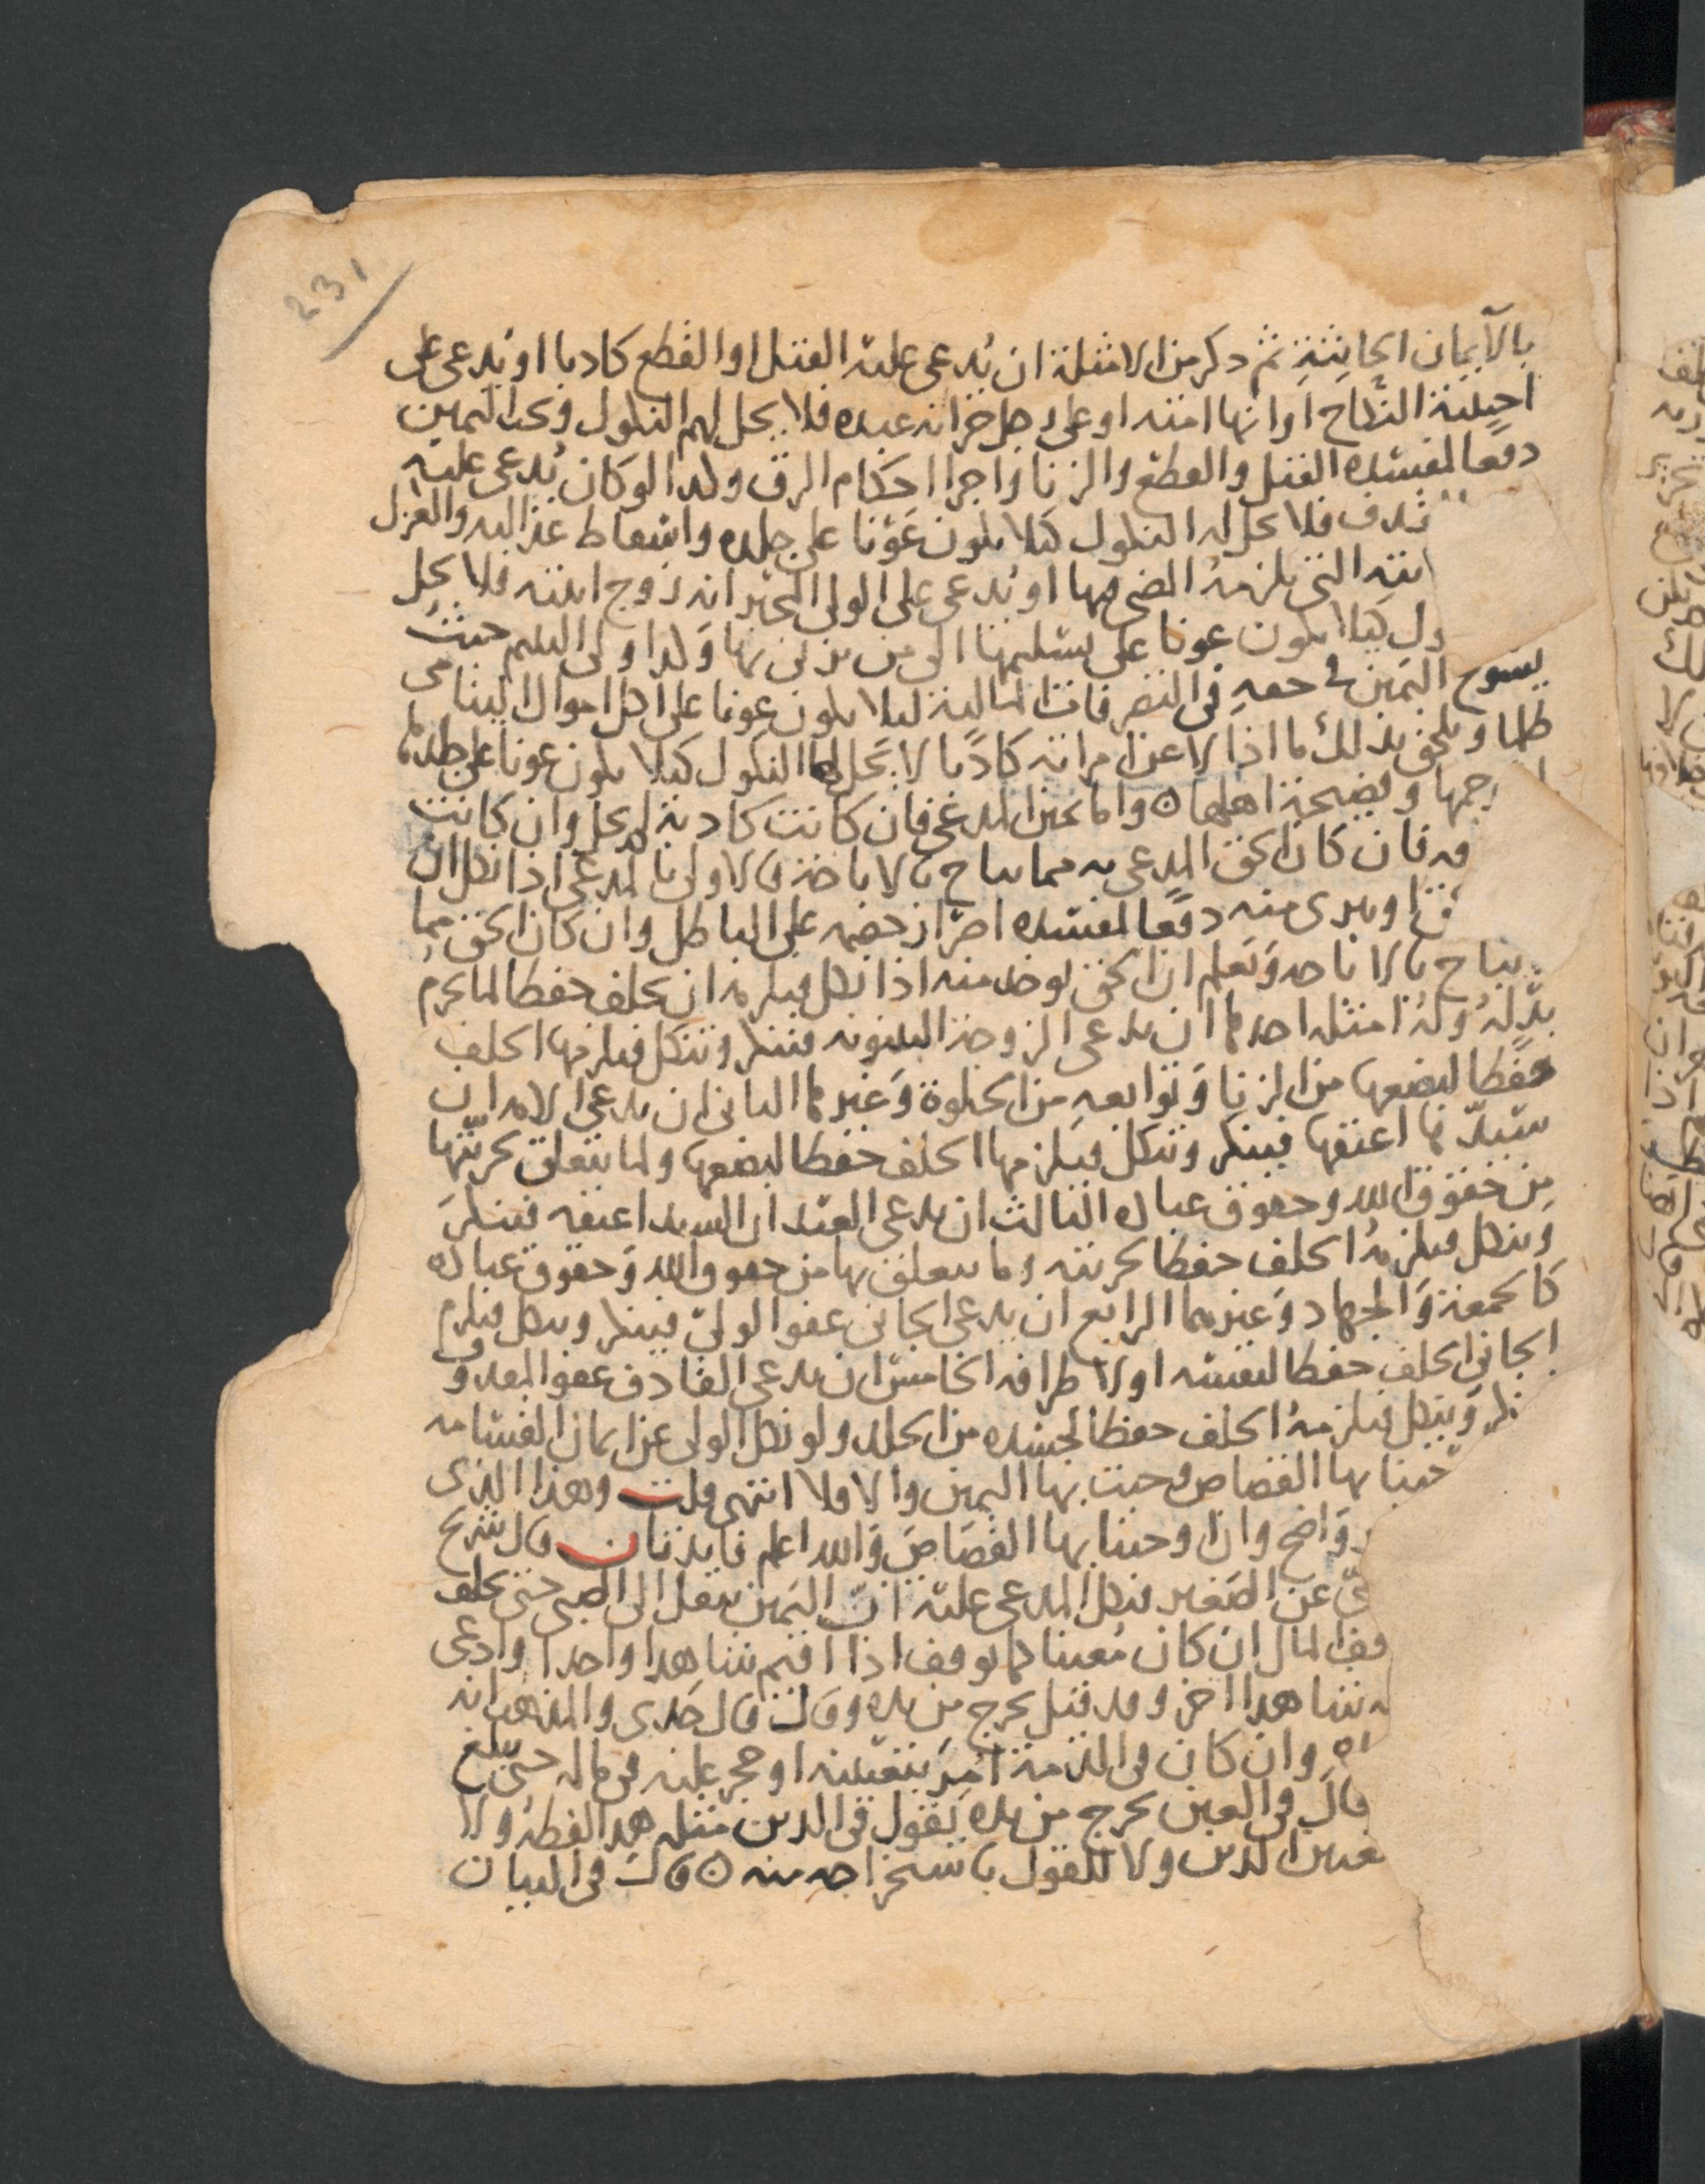 231
بالأيمان الحانثة ثم ذكر من الامثلة ان يُدعى عليه القتل او القطع كاذبا او يُدعى على
اجنبية النكاح او انها امته او على رجل حر انه عبده فلا يحل لهم النكول وتجب اليمين
دفعًا لمفسده القتل والقطع والزنا واجرا احكام الرق وكذا لو كان يُدعى عليه
ذف فلا يحل له النكول كيلا يكون عَوْنا على جلده واسقاط عدالته والعزل
يته التي يلزمهُ المضي فيها او يُدعى على الولي المجبر انه زوج ابنته فلا يحل
ول كيلا يكون عونا على تسليمها الى من يزني بها وكذا ولي اليتيم حيث
يسوح اليمين في حقه في التصرفات المالية ليلا يكون عونا على اكل اموال اليتامى
ظلما ويلحق بذلك ما اذا لاعن امراته كاذبا لا يحل لها النكول كيلا يكون عونا على جلدها
رجمها وفضيحة اهلها ٥ واما يمين المدعي فان كانت كاذبة لم يحل وان كانت
قه فان كان الحق المدعى به مما يباح بالاباحة فالاولى بالمدعي اذا نكل ان
ق او يبرى منه دفعًا لمفسده اصرار خصمه على الباطل وان كان الحق مما
يباح بالاباحه ويَعلم ان الحق يوخذ منه اذا نكل فيلزمه ان يحلف حفظا لما يحرم
بذله وله امثله احدها ان يدعي الزوجة البينونه فينكر وينكل فيلزمها الحلف
حفظا لبضعها من الزنا وتوابعه من الخلوة وغيرها الثاني ان يدعي الامه ان
سَيّدها اعتقها فينكر وينكل فيلزمها الحلف حفظا لبضعها ولما يتعلق بحريتها
مِن حقوق الله وحقوق عباده الثالث ان يدعي العبد ان السيد اعتقه فينكرَ
وينكل فيلزمهُ الحلف حفظا لحريته وما يتعلق بها من حقوق الله وحقوق عباده
كالجمعة والجهاد وغيرهما الرابع ان يدعي الجاني عفو الولي فينكر وينكل فيلزم
الجاني الحلف حفظا لنفسه او لاطرافه الخامس ان يدعي القاذف عفو المقذوف
ر وينكل فيلزمهُ الحلف حفظا لجسده من الجلد ولو نكل الولي عن ايمان القسامه
جبنا بها القصاص وجبت بها اليمين والا فلا انتهى قلت وهذا الذي
واضح وان اوجبنا بها القصاص والله اعلم فايدتان قال شريح
ىّ عن الصغير فنكل المدعى عليه ان اليمين ينقل الى الصبي حتى يحلف
قف المال ان كان مُعينا كما يوقف اذا اقيم شاهدا واحدا وادعى
ه شاهدا اخر وقد قيل يخرج من يده وقال قال جدي والمذهب انه
اه وان كان في الذمة اُمِرَ بتعيينه او حجر عليه في ماله حتى يبلغ
قال في العين يخرج من يده يقول في الدين مثله هذا لفظه ولا
تعيين الدين ولا للقول باستخراجه منه ٥ قال في البيان